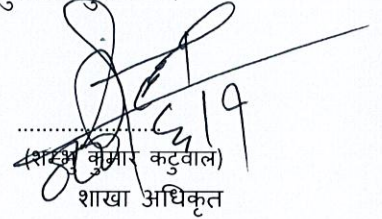 ....................
(शम्भु कुमार कटुवाल)
शाखा अधिकृत